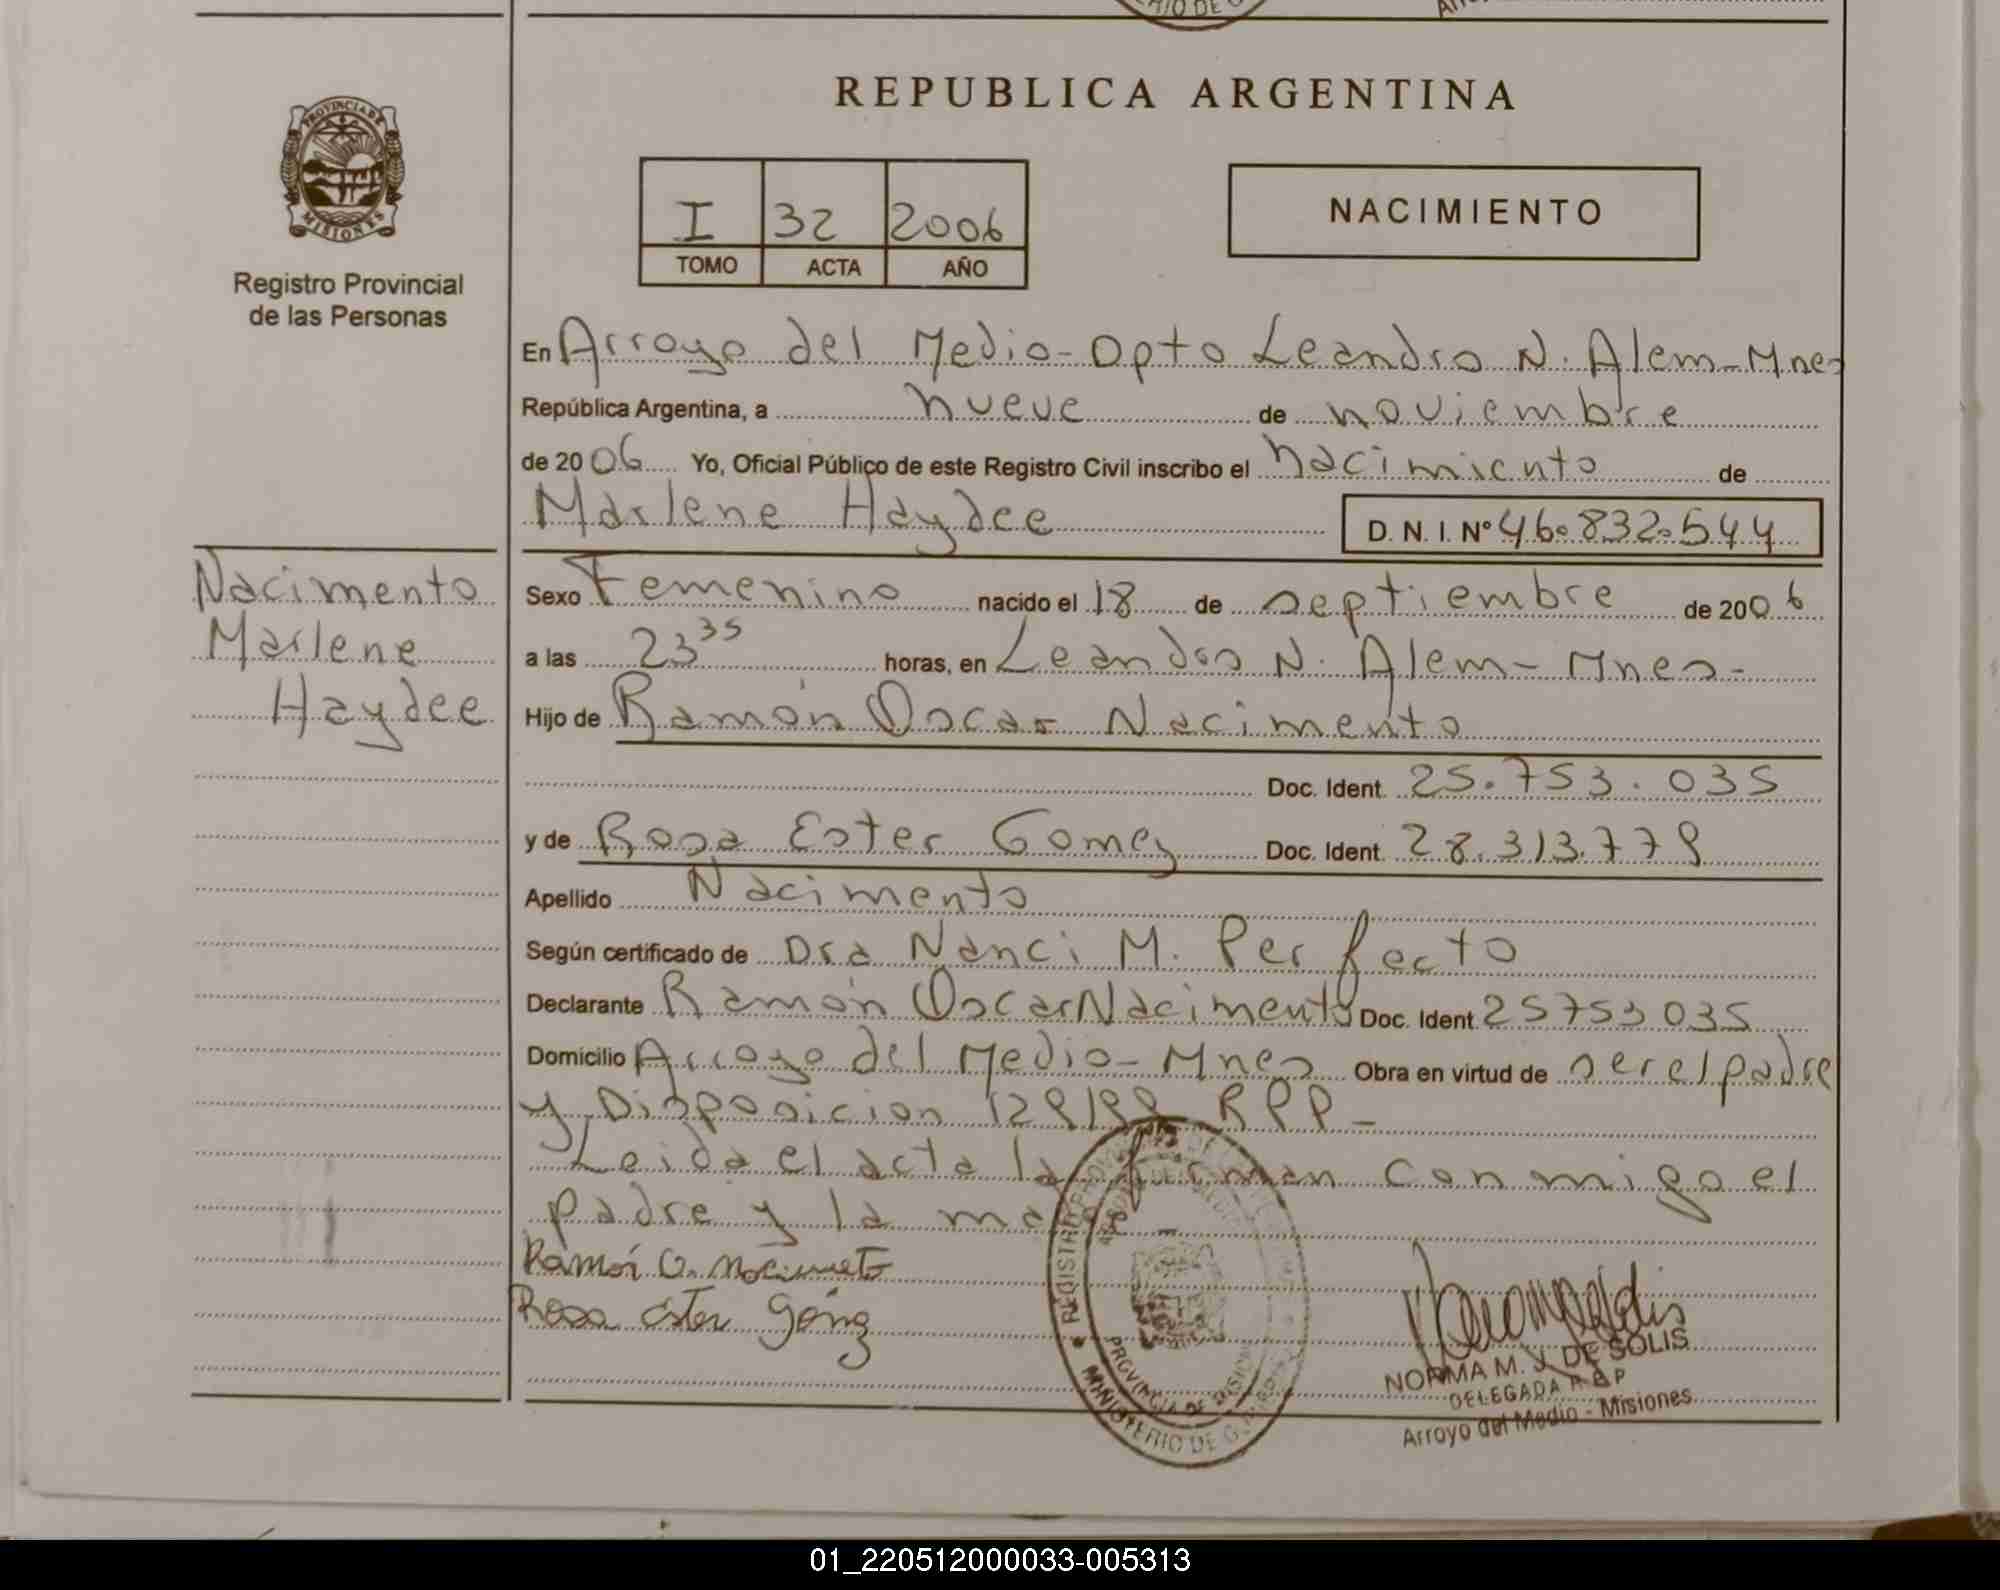 REPUBLICA ARGENTINA
PROVINCIA DE MISIONES
Registro Provincial
de las Personas
I 32 2006
TOMO ACTA AÑO
NACIMIENTO
En Arroyo del Medio-Dpto Leandro N. Alem-Mnes
República Argentina, a nueve de noviembre
de 2006 Yo, Oficial Público de este Registro Civil inscribo el nacimiento de
Marlene Haydee D. N. I. Nº 46.832.544
Nacimento
Marlene
Haydee
Sexo Femenino nacido el 18 de septiembre de 2006
a las 23 35 horas, en Leandro N. Alem-Mnes-
Hijo de Ramón Oscar Nacimento
Doc. Ident. 25.753.035
y de Rosa Ester Gomez Doc. Ident. 28.313.779
Apellido Nacimento
Según certificado de Dra Nanci M. Perfecto
Declarante Ramón Oscar Nacimento Doc. Ident. 25753035
Domicilio Arroyo del Medio-Mnes Obra en virtud de ser el padre
y Disposicion 129/99 RPP-
Leida el acta la firman conmigo el
padre y la madre-
Ramón O. Nacimeto
Rosa Ester Gómez
REGISTRO PROVINCIAL DE LAS PERSONAS
PROVINCIA DE MISIONES
MINISTERIO DE GOBIERNO
NORMA M. V. DE SOLIS
DELEGADA R P P
Arroyo del Medio - Misiones
01_220512000033-005313